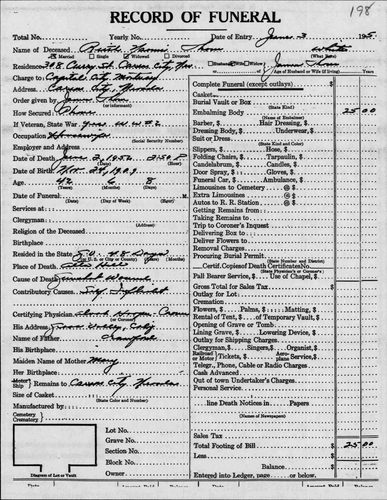 198
RECORD OF FUNERAL
Total No. Yearly No. Date of Entry June 3 195
Name of Deceased Ruth
Married Single Widowed Divorced (What Race)
Residence St. Carson City, Nev.
Husband Wife Widow of Age of Husband or Wife (if living) Years
Charge to Capital City Mortuary
Address Carson City, Nevada
Order given by James
How Secured Phone
If Veteran, State War
Occupation (Social Security Number)
Employer and Address
Date of Death June 2, 1952 P
Date of Birth Nov. 29, 1909
Age 42 8
(Years) (Months) (Days)
Date of Funeral
(Date) (Day of Week) (Time)
Services at
Clergyman
Religion of the Deceased
Birthplace
Resided in the State
(In U. S. or City or County) (Years) (Months)
Place of Death
Cause of Death
Contributory Causes
Certifying Physician
His Address Calif
Name of Father Crawford
His Birthplace
Maiden Name of Mother Mary
Her Birthplace
Motor Ship Remains to Carson City, Nevada
Size of Casket
(State Color and Number)
Manufactured by
Cemetery
Crematory
Lot No.
Grave No.
Section No.
Block No.
Owner
Diagram of Lot or Vault
Complete Funeral (except outlays) $
Casket
Burial Vault or Box
(State Kind)
Embalming Body 25 00
(Name of Embalmer)
Barber, $ Hair Dressing, $
Dressing Body, $ Underwear, $
Suit or Dress
(State Kind and Color)
Slippers, $ Hose, $
Folding Chairs, $ Tarpaulin, $
Candelabrum, $ Candles, $
Door Spray, $ Gloves, $
Funeral Car, $ Ambulance, $
Limousines to Cemetery @ $
Extra Limousines @ $
Autos to R. R. Station @ $
Getting Remains from
Taking Remains to
Trip to Coroner's Inquest
Delivering Box to
Deliver Flowers to
Removal Charges
Procuring Burial Permit
(State Number and District)
Certif. Copied Death Certificates No.
(State Physician's or Coroner's)
Pall Bearer Service, $ Use of Chapel, $
Gross Total for Sales Tax $
Outlay for Lot
Cremation
Flowers, $ Palms, $ Matting, $
Rental of Tent, $ of Temporary Vault, $
Opening of Grave or Tomb
Lining Grave, $ Lowering Device, $
Outlay for Shipping Charges
Clergyman, $ Singers, $ Organist, $
Railroad or Motor Tickets, $ Aeroplane Service, $
Telegr., Phone, Cable or Radio Charges
Cash Advanced
Out of town Undertaker's Charges
Personal Service
line Death Notices in Papers
(Names of Newspapers)
Sales Tax
Total Footing of Bill $ 25 00
Less
Balance $
Entered into Ledger, page or below.